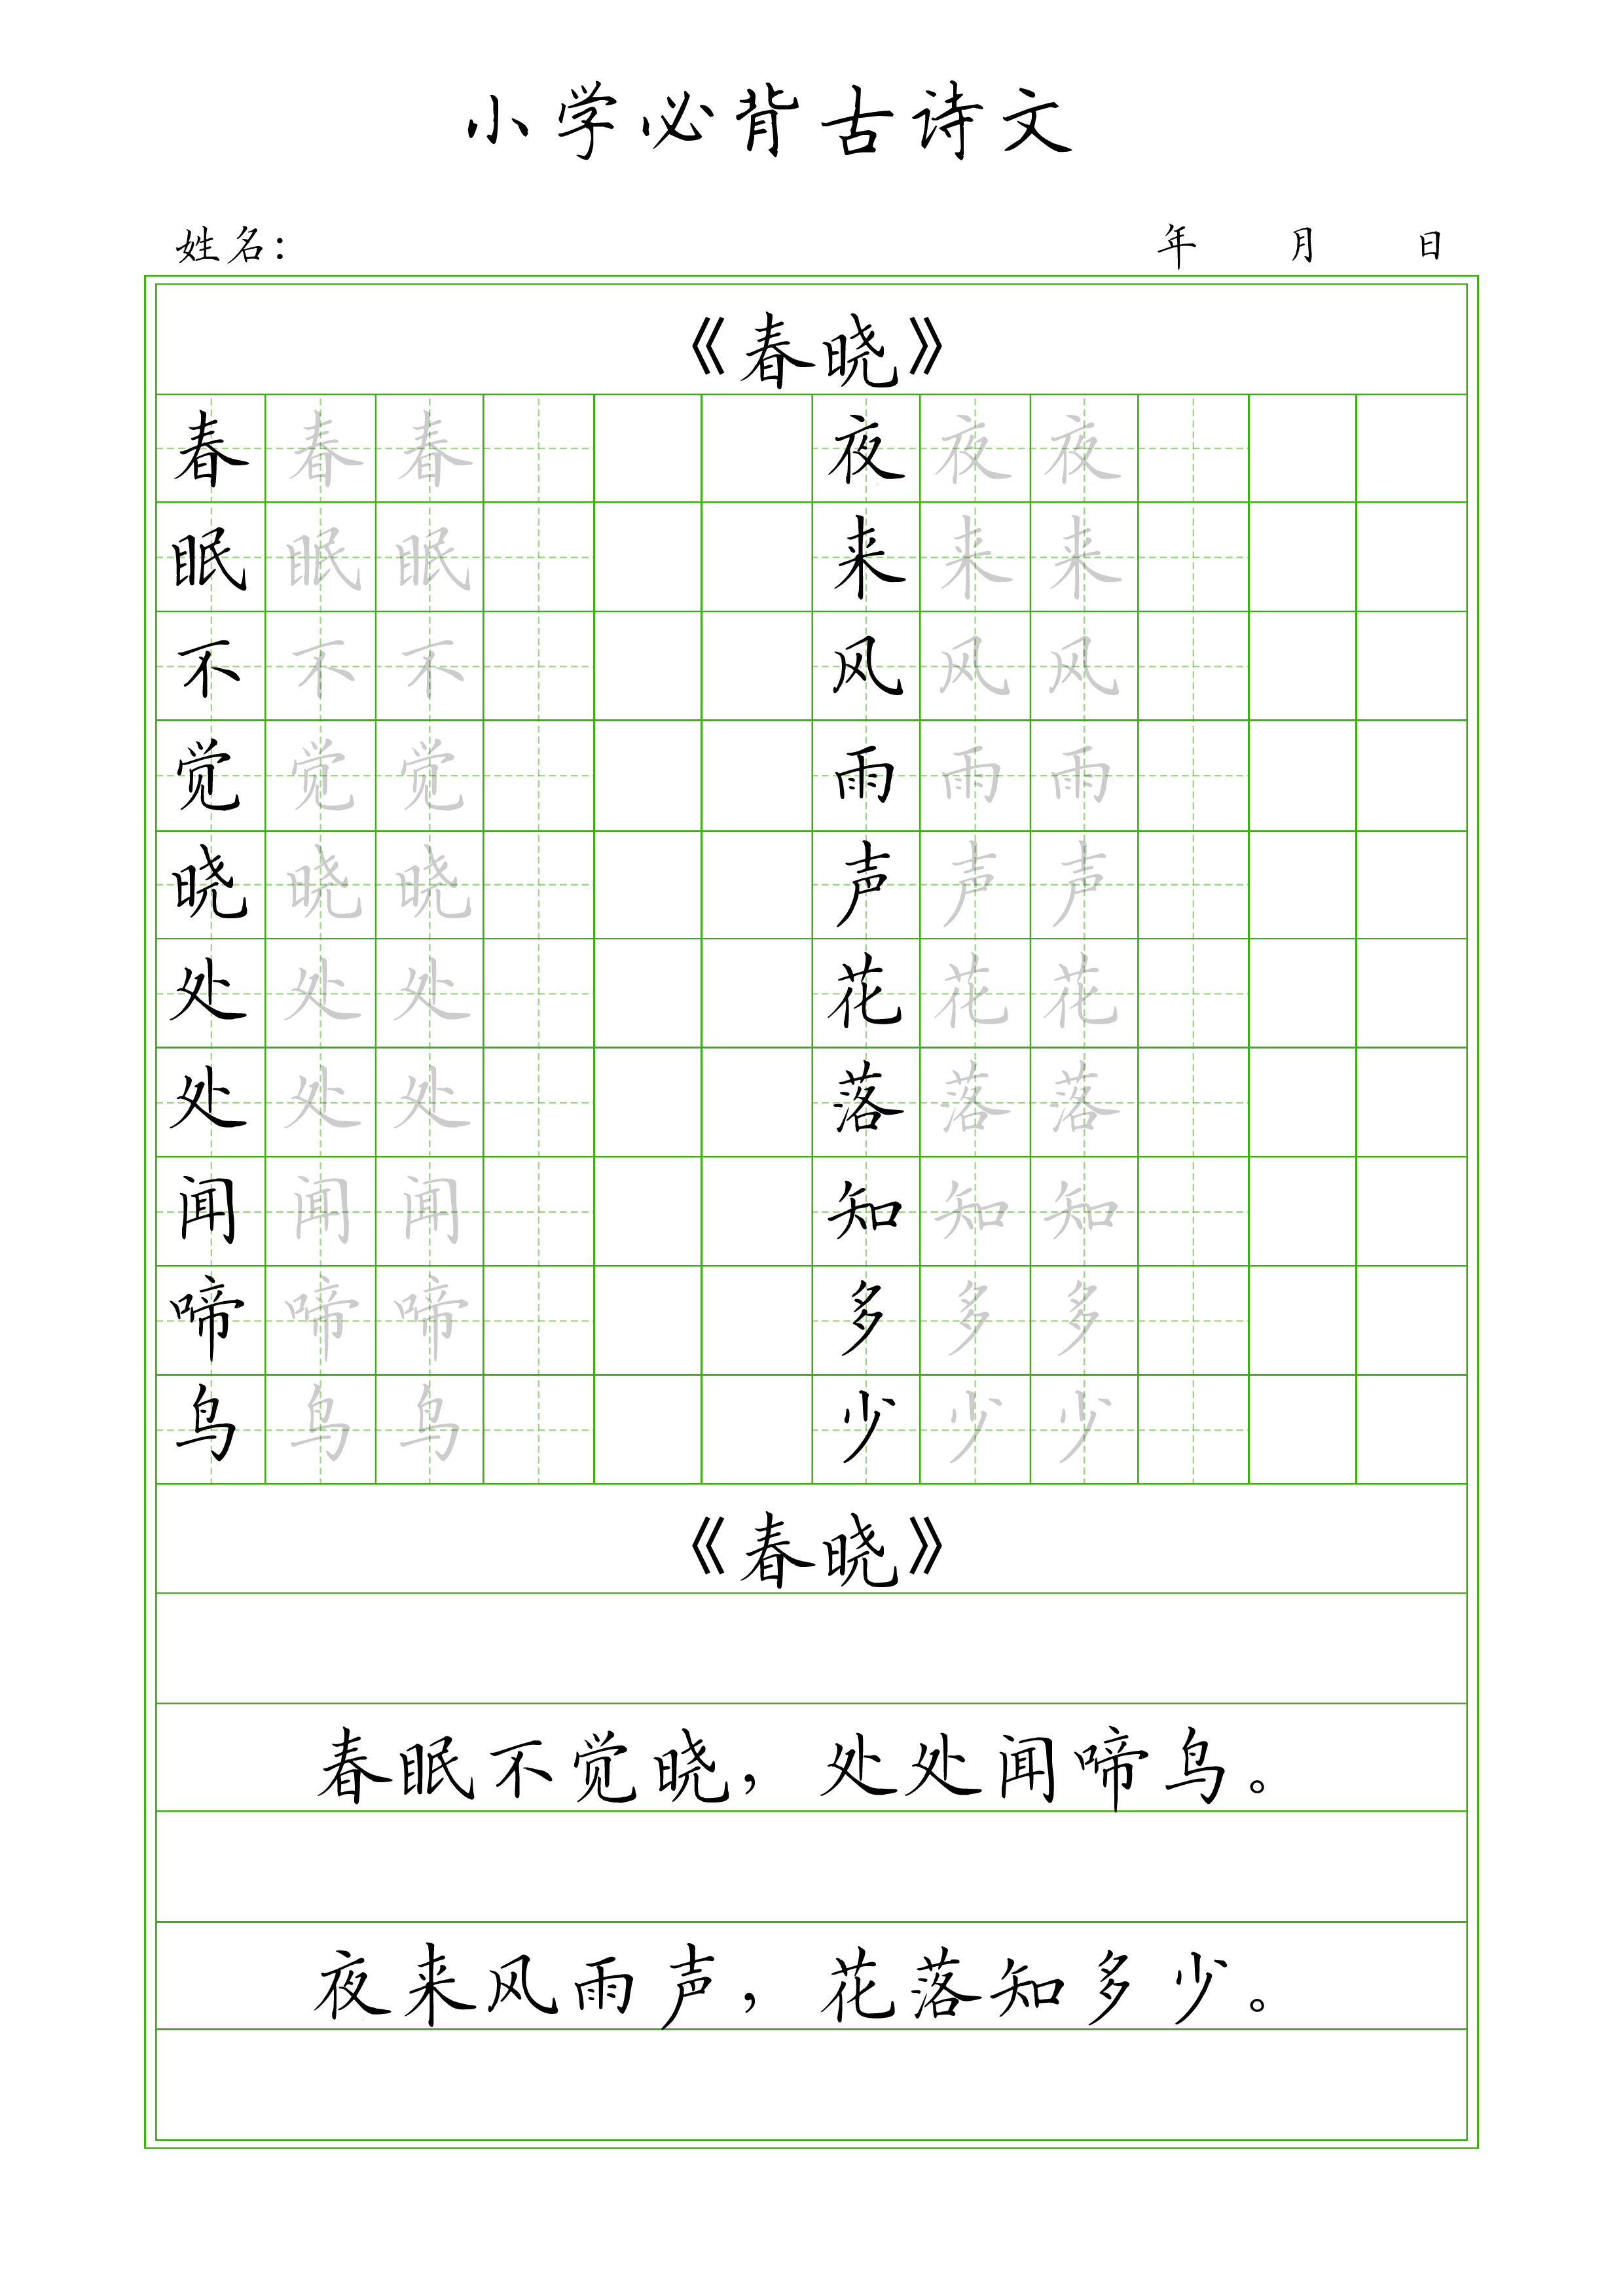 小学必背古诗文
姓名： 年 月 日
《春晓》
春 春 春 夜 夜 夜
眠 眠 眠 来 来 来
不 不 不 风 风 风
觉 觉 觉 雨 雨 雨
晓 晓 晓 声 声 声
处 处 处 花 花 花
处 处 处 落 落 落
闻 闻 闻 知 知 知
啼 啼 啼 多 多 多
鸟 鸟 鸟 少 少 少
《春晓》
春眠不觉晓，处处闻啼鸟。
夜来风雨声，花落知多少。